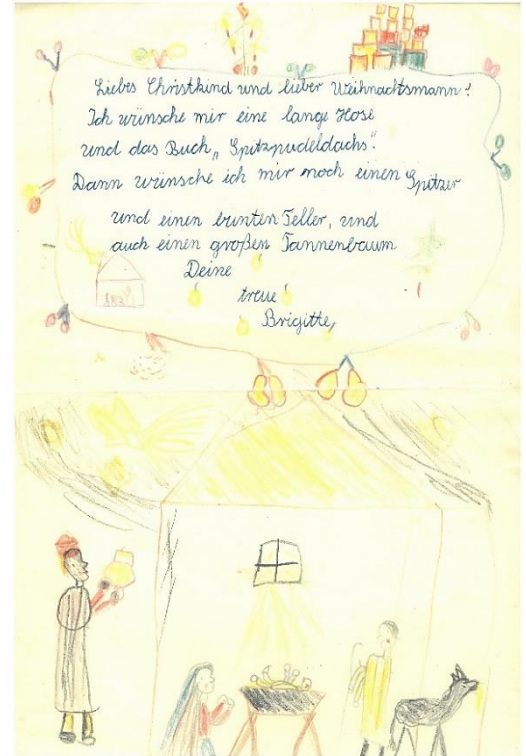 Liebes Christkind und lieber Weihnachtsmann!
Ich wünsche mir eine lange Hose
und das Buch „Spitzpudeldachs".
Dann wünsche ich mir noch einen Spitzer
und einen bunten Teller, und
auch einen großen Tannenbaum
Deine
treue
Brigitte,